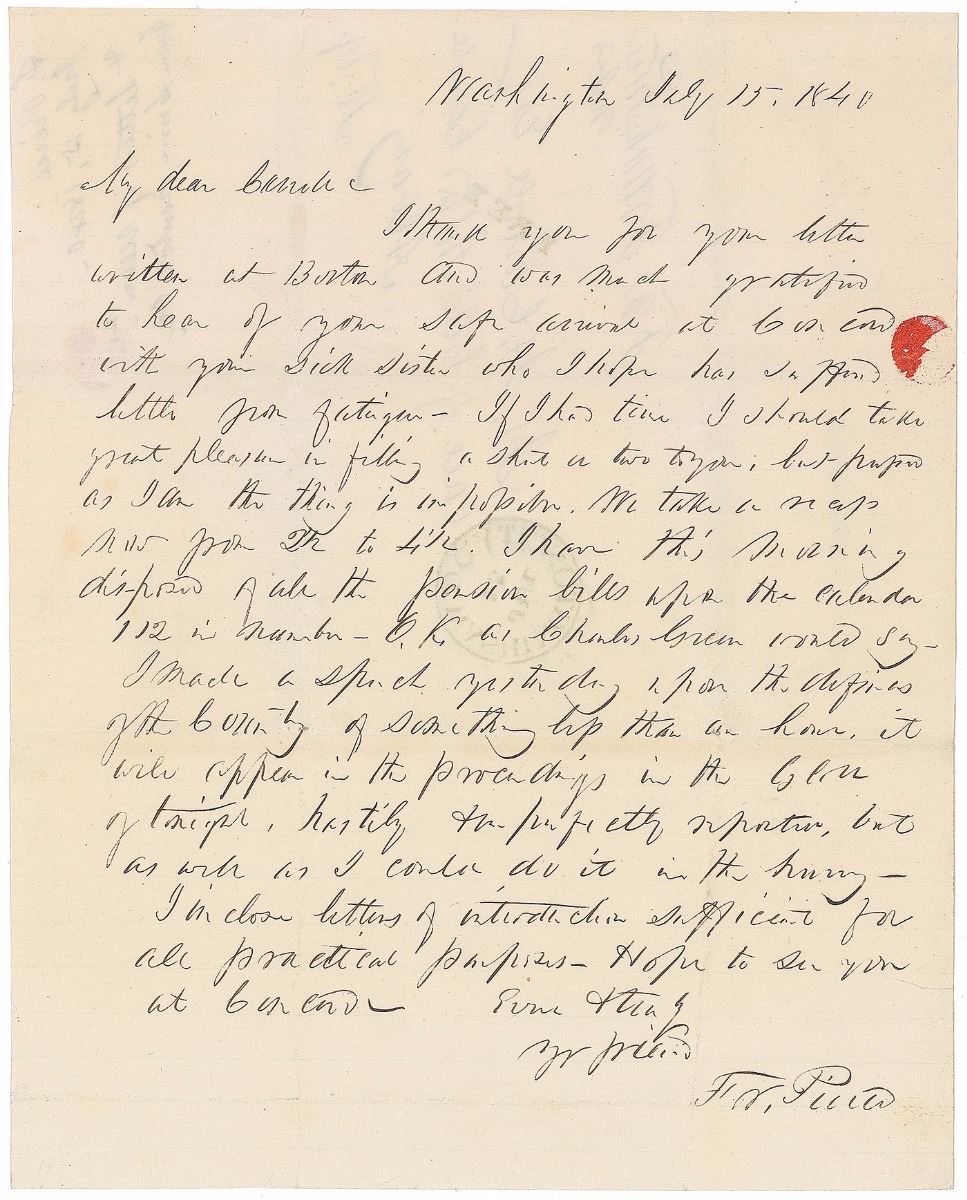 Washington July 15. 1840
My dear
I thank you for your letter
written at Boston and was much gratified
to hear of your safe arrival at Concord
with your sick sister who I hope has suffered
little from fatigue - If I had time I should take
great pleasure in filling a sheet or two to you, but pressed
as I am the thing is impossible. We take a recess
now from 2½ to 4½. I have this morning
disposed of all the pension bills upon the calendar
112 in number - O.K. as Charles Green would say -
I made a speech yesterday upon the defences
of the County of something less than an hour, it
will appear in the proceedings in the Globe
of tonight, hastily & imperfectly reported, but
as well as I could do it in the hurry -
I inclose letters of introduction sufficient for
all practical purposes - Hope to see you
at Concord - Ever & truly
yr friend
Fr. Pierce